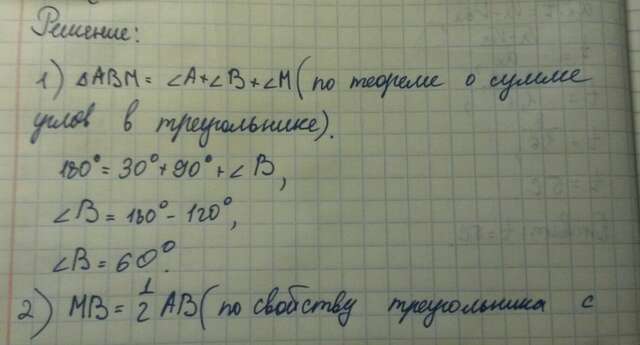 Решение:
1) △ABM = ∠A+∠B+∠M (по теореме о сумме
углов в треугольнике).
180° = 30° + 90° + ∠B,
∠B = 180° - 120°,
∠B = 60°.
2) MB = 1/2 AB (по свойству треугольника с